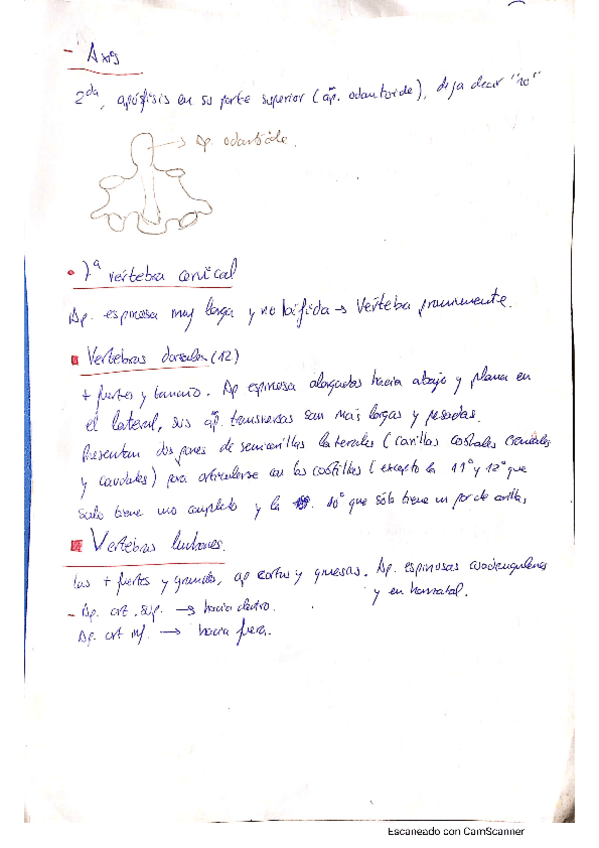 - Axis
2da, apófisis en su parte superior (ap. odontoide), deja decir "no"
→ Ap. odontoide.
• 7ª vertebra cervical
Ap. espinosa muy larga y no bífida → Vértebra prominente.
Vertebras dorsales (12)
+ fuertes y tamaño. Ap espinosa alargadas hacia abajo y plana en
el lateral, sus ap. transversas son más largas y pesadas.
Presentan dos pares de semicarillas laterales (carillas costales craneales
y caudales) para articularse con las costillas (excepto la 11º y 12º que
solo tiene uno completo y la 10º que sólo tiene un par de carillas,
Vertebras lumbares.
las + fuertes y grandes, ap cortas y gruesas. Ap. espinosas cuadrangulares
y en horizontal.
- Ap. art. sup. → hacia dentro.
Ap. art inf. → hacia fuera.
Escaneado con CamScanner